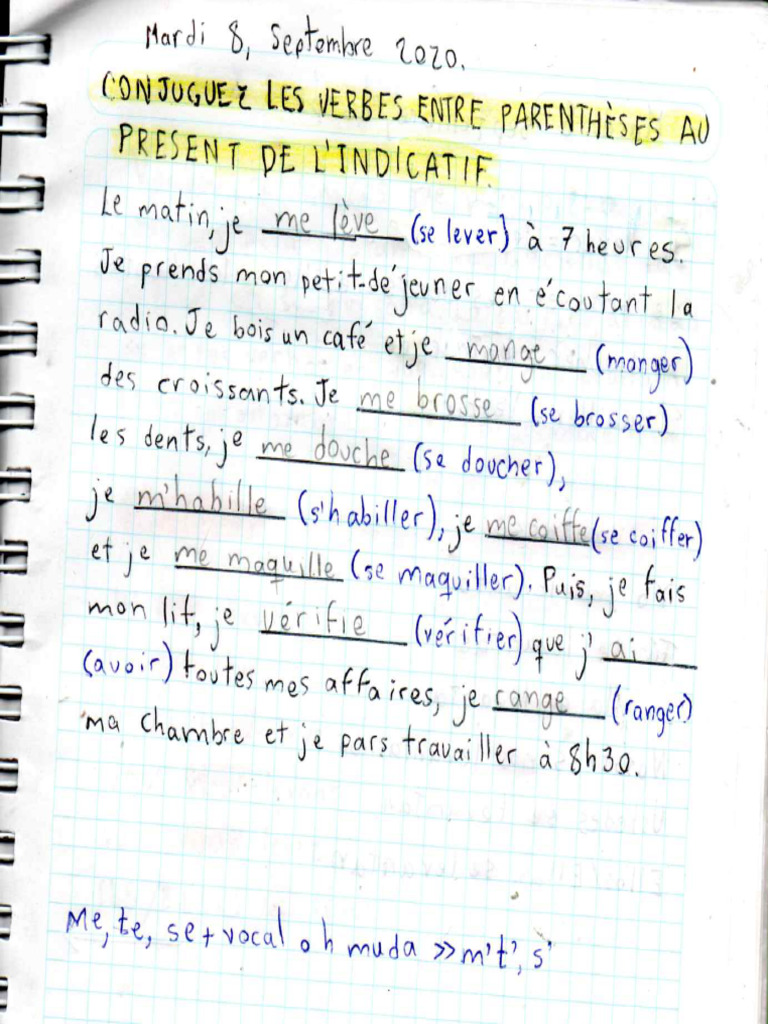 Mardi 8, Septembre 2020.
CONJUGUEZ LES VERBES ENTRE PARENTHÈSES AU
PRESENT DE L'INDICATIF.
Le matin, je me lève (se lever) à 7 heures.
Je prends mon petit-déjeuner en écoutant la
radio. Je bois un café et je mange (manger)
des croissants. Je me brosse (se brosser)
les dents, je me douche (se doucher),
je m'habille (s'habiller), je me coiffe (se coiffer)
et je me maquille (se maquiller). Puis, je fais
mon lit, je vérifie (vérifier) que j'ai
(avoir) toutes mes affaires, je range (ranger)
ma chambre et je pars travailler à 8h30.
Me, te, se + vocal o h muda >> m't', s'